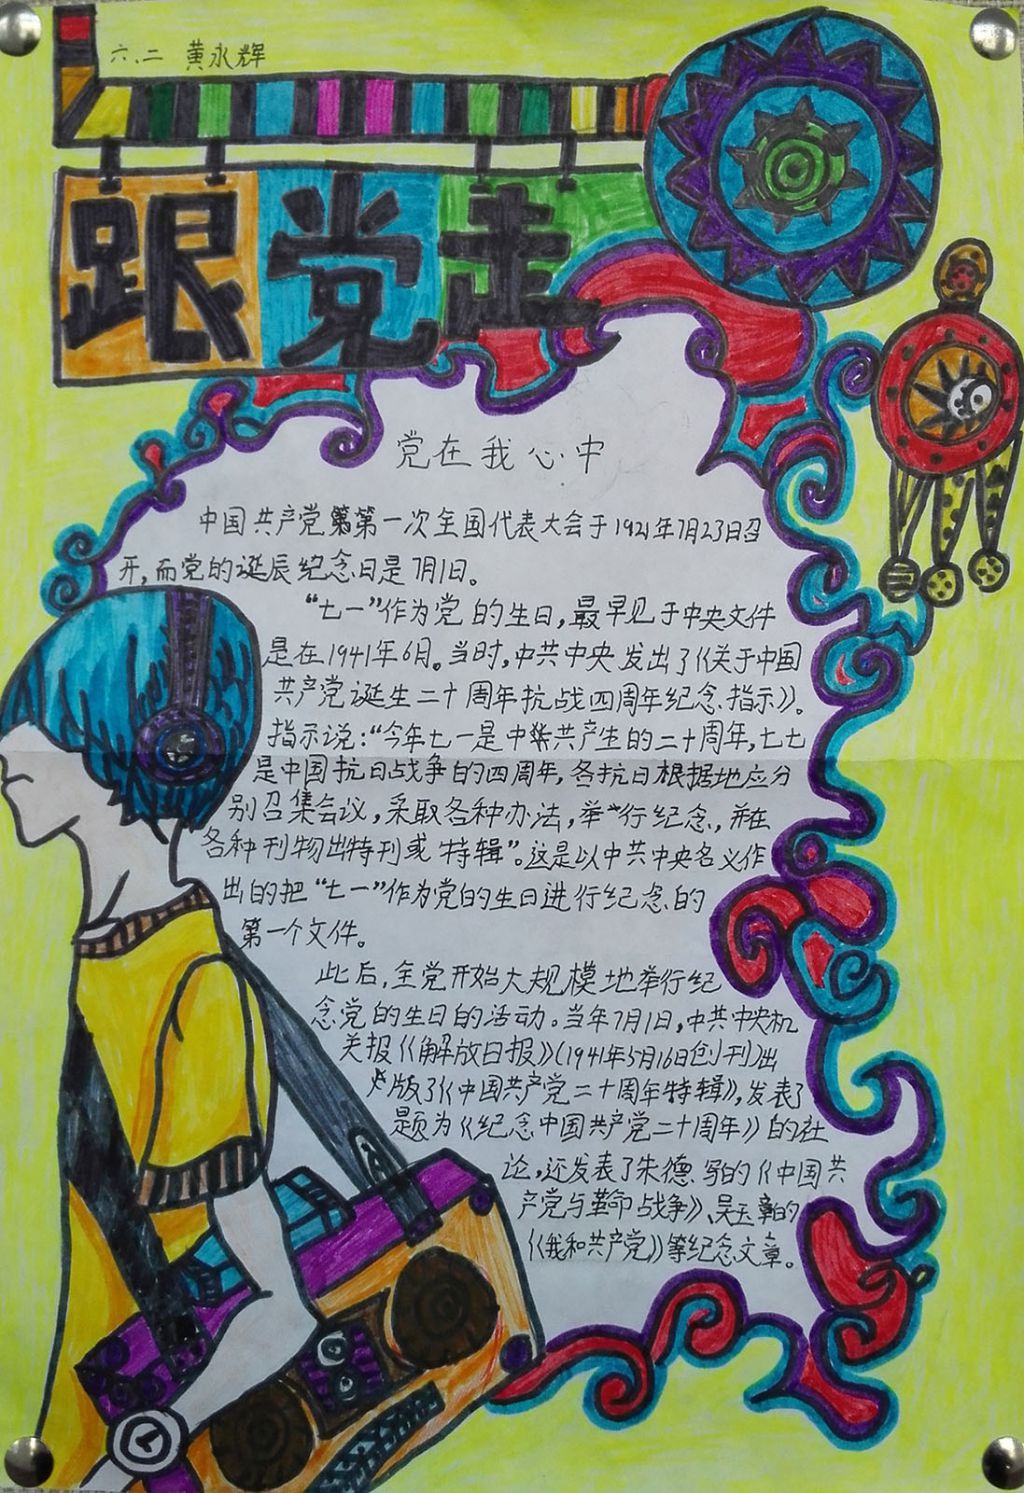 六.二 黄永辉
跟党走
党在我心中
中国共产党第第一次全国代表大会于1921年7月23日召
开，而党的诞辰纪念日是7月1日。
“七一”作为党的生日，最早见于中央文件
是在1941年6月。当时，中共中央发出了《关于中国
共产党诞生二十周年抗战四周年纪念指示》。
指示说：“今年七一是中共产生的二十周年，七七
是中国抗日战争的四周年，各抗日根据地应分
别召集会议，采取各种办法，举行纪念，并在
各种刊物出特刊或“特辑”。这是以中共中央名义作
出的把“七一”作为党的生日进行纪念的
第一个文件。
此后，全党开始大规模地举行纪
念党的生日的活动。当年7月1日，中共中央机
关报《解放日报》（1941年5月16日创刊）出
版了《中国共产党二十周年特辑》，发表了
题为《纪念中国共产党二十周年》的社
论，还发表了朱德写的《中国共
产党与革命战争》、吴玉章的
《我和共产党》等纪念文章。